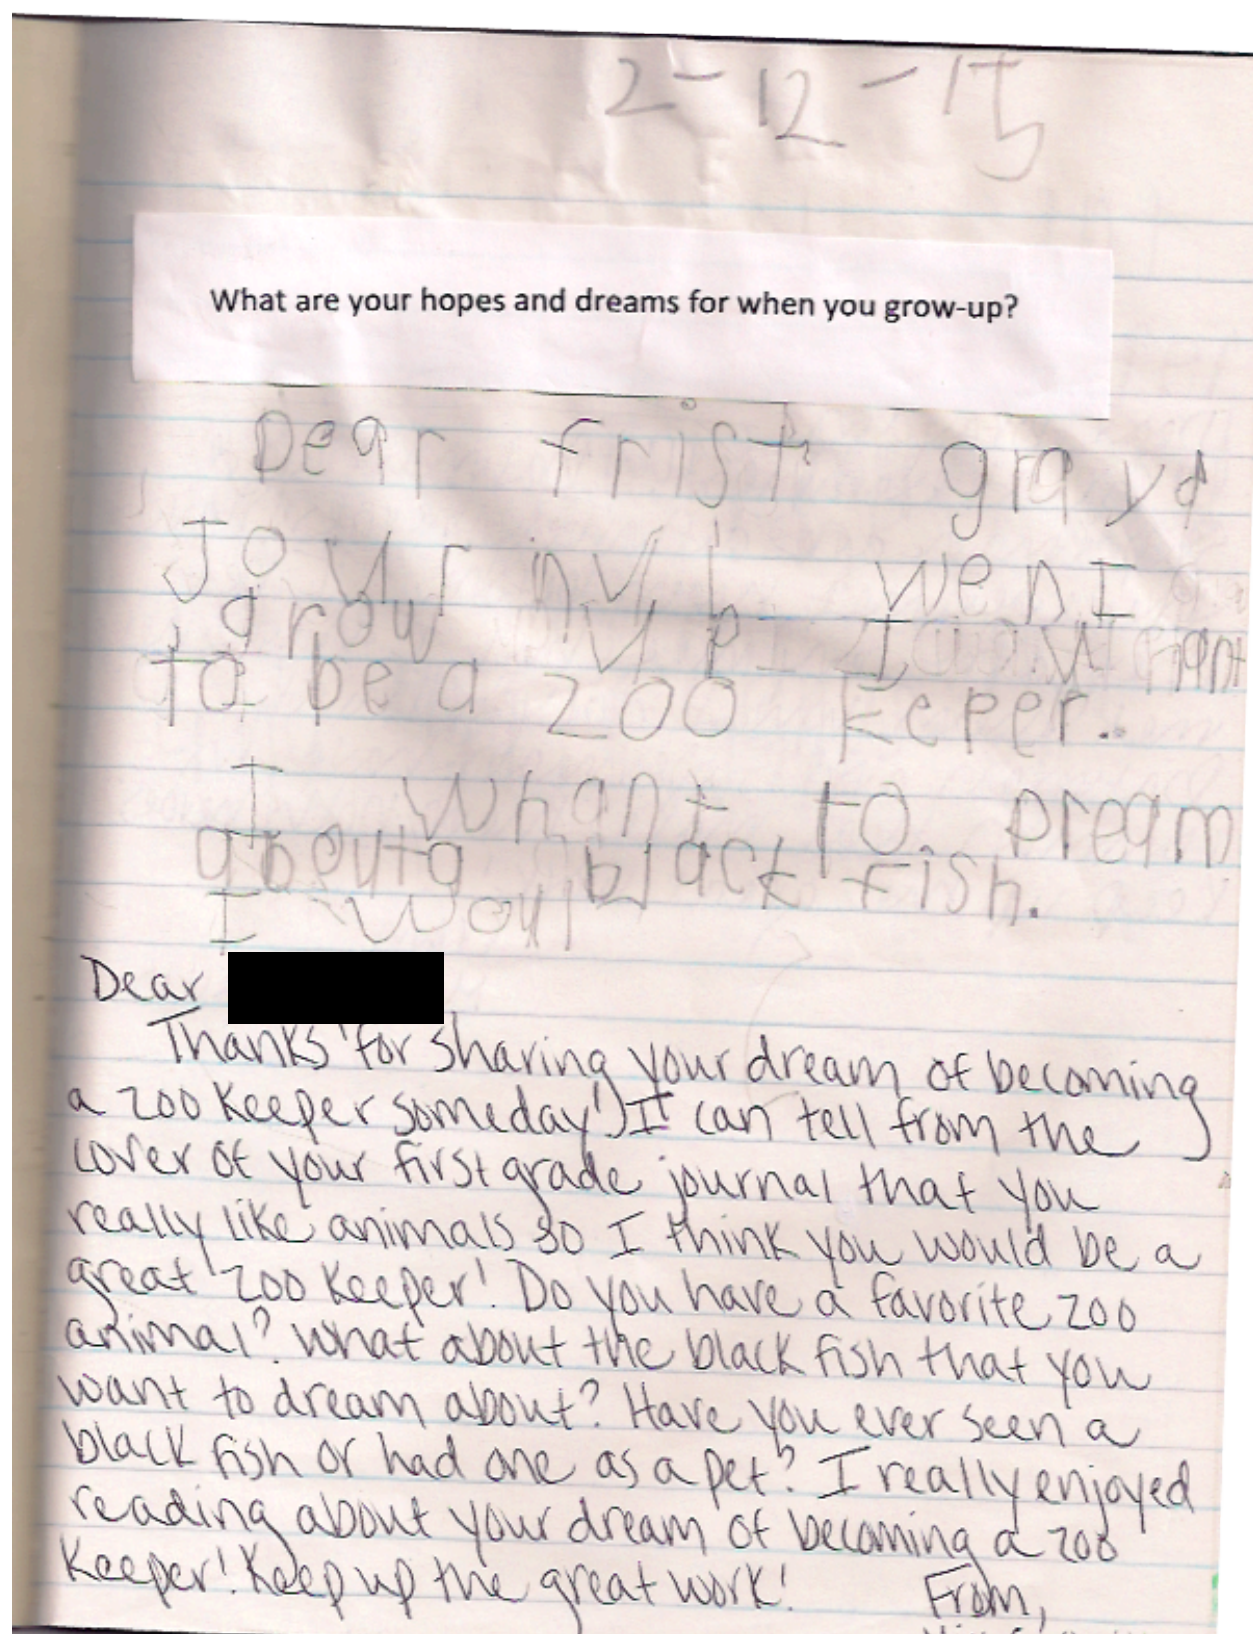 2-12-15
What are your hopes and dreams for when you grow-up?
Dear frist grayd
Journyl wen I
grow up I want
to be a zoo keper.
I whant to Dream
abeuta black fish.
I woul
Dear
Thanks for sharing your dream of becoming
a zoo keeper someday! I can tell from the
cover of your first grade journal that you
really like animals so I think you would be a
great zoo keeper! Do you have a favorite zoo
animal? What about the black fish that you
want to dream about? Have you ever seen a
black fish or had one as a pet? I really enjoyed
reading about your dream of becoming a zoo
keeper! Keep up the great work!
From,